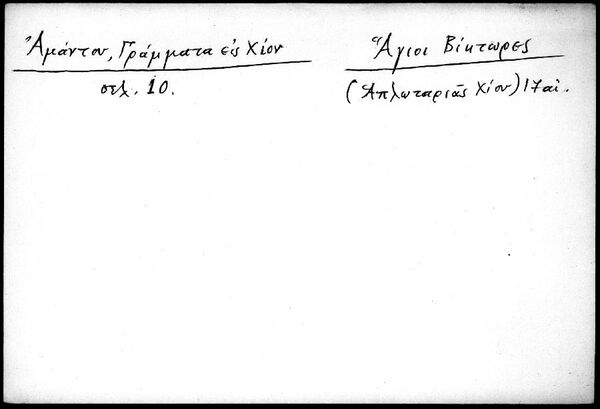 Ἀμάντου, Γράμματα εἰς Χίον
σελ. 10.
Ἅγιοι Βίκτωρες
(Ἁπλωταριᾶς Χίου) 17 αἰ.